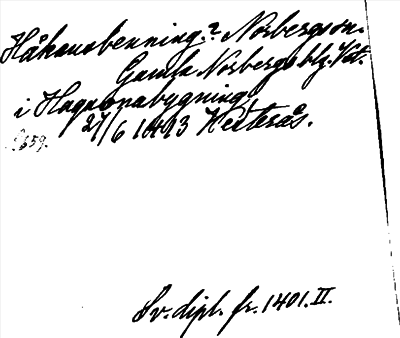 Håkansbenning.? Norbergs sn.
Gamla Norbergs blg. Vst.
i Haquonabygning
27/6 1413 Westerås.
S. 659.
Sv. dipl. fr. 1401. II.